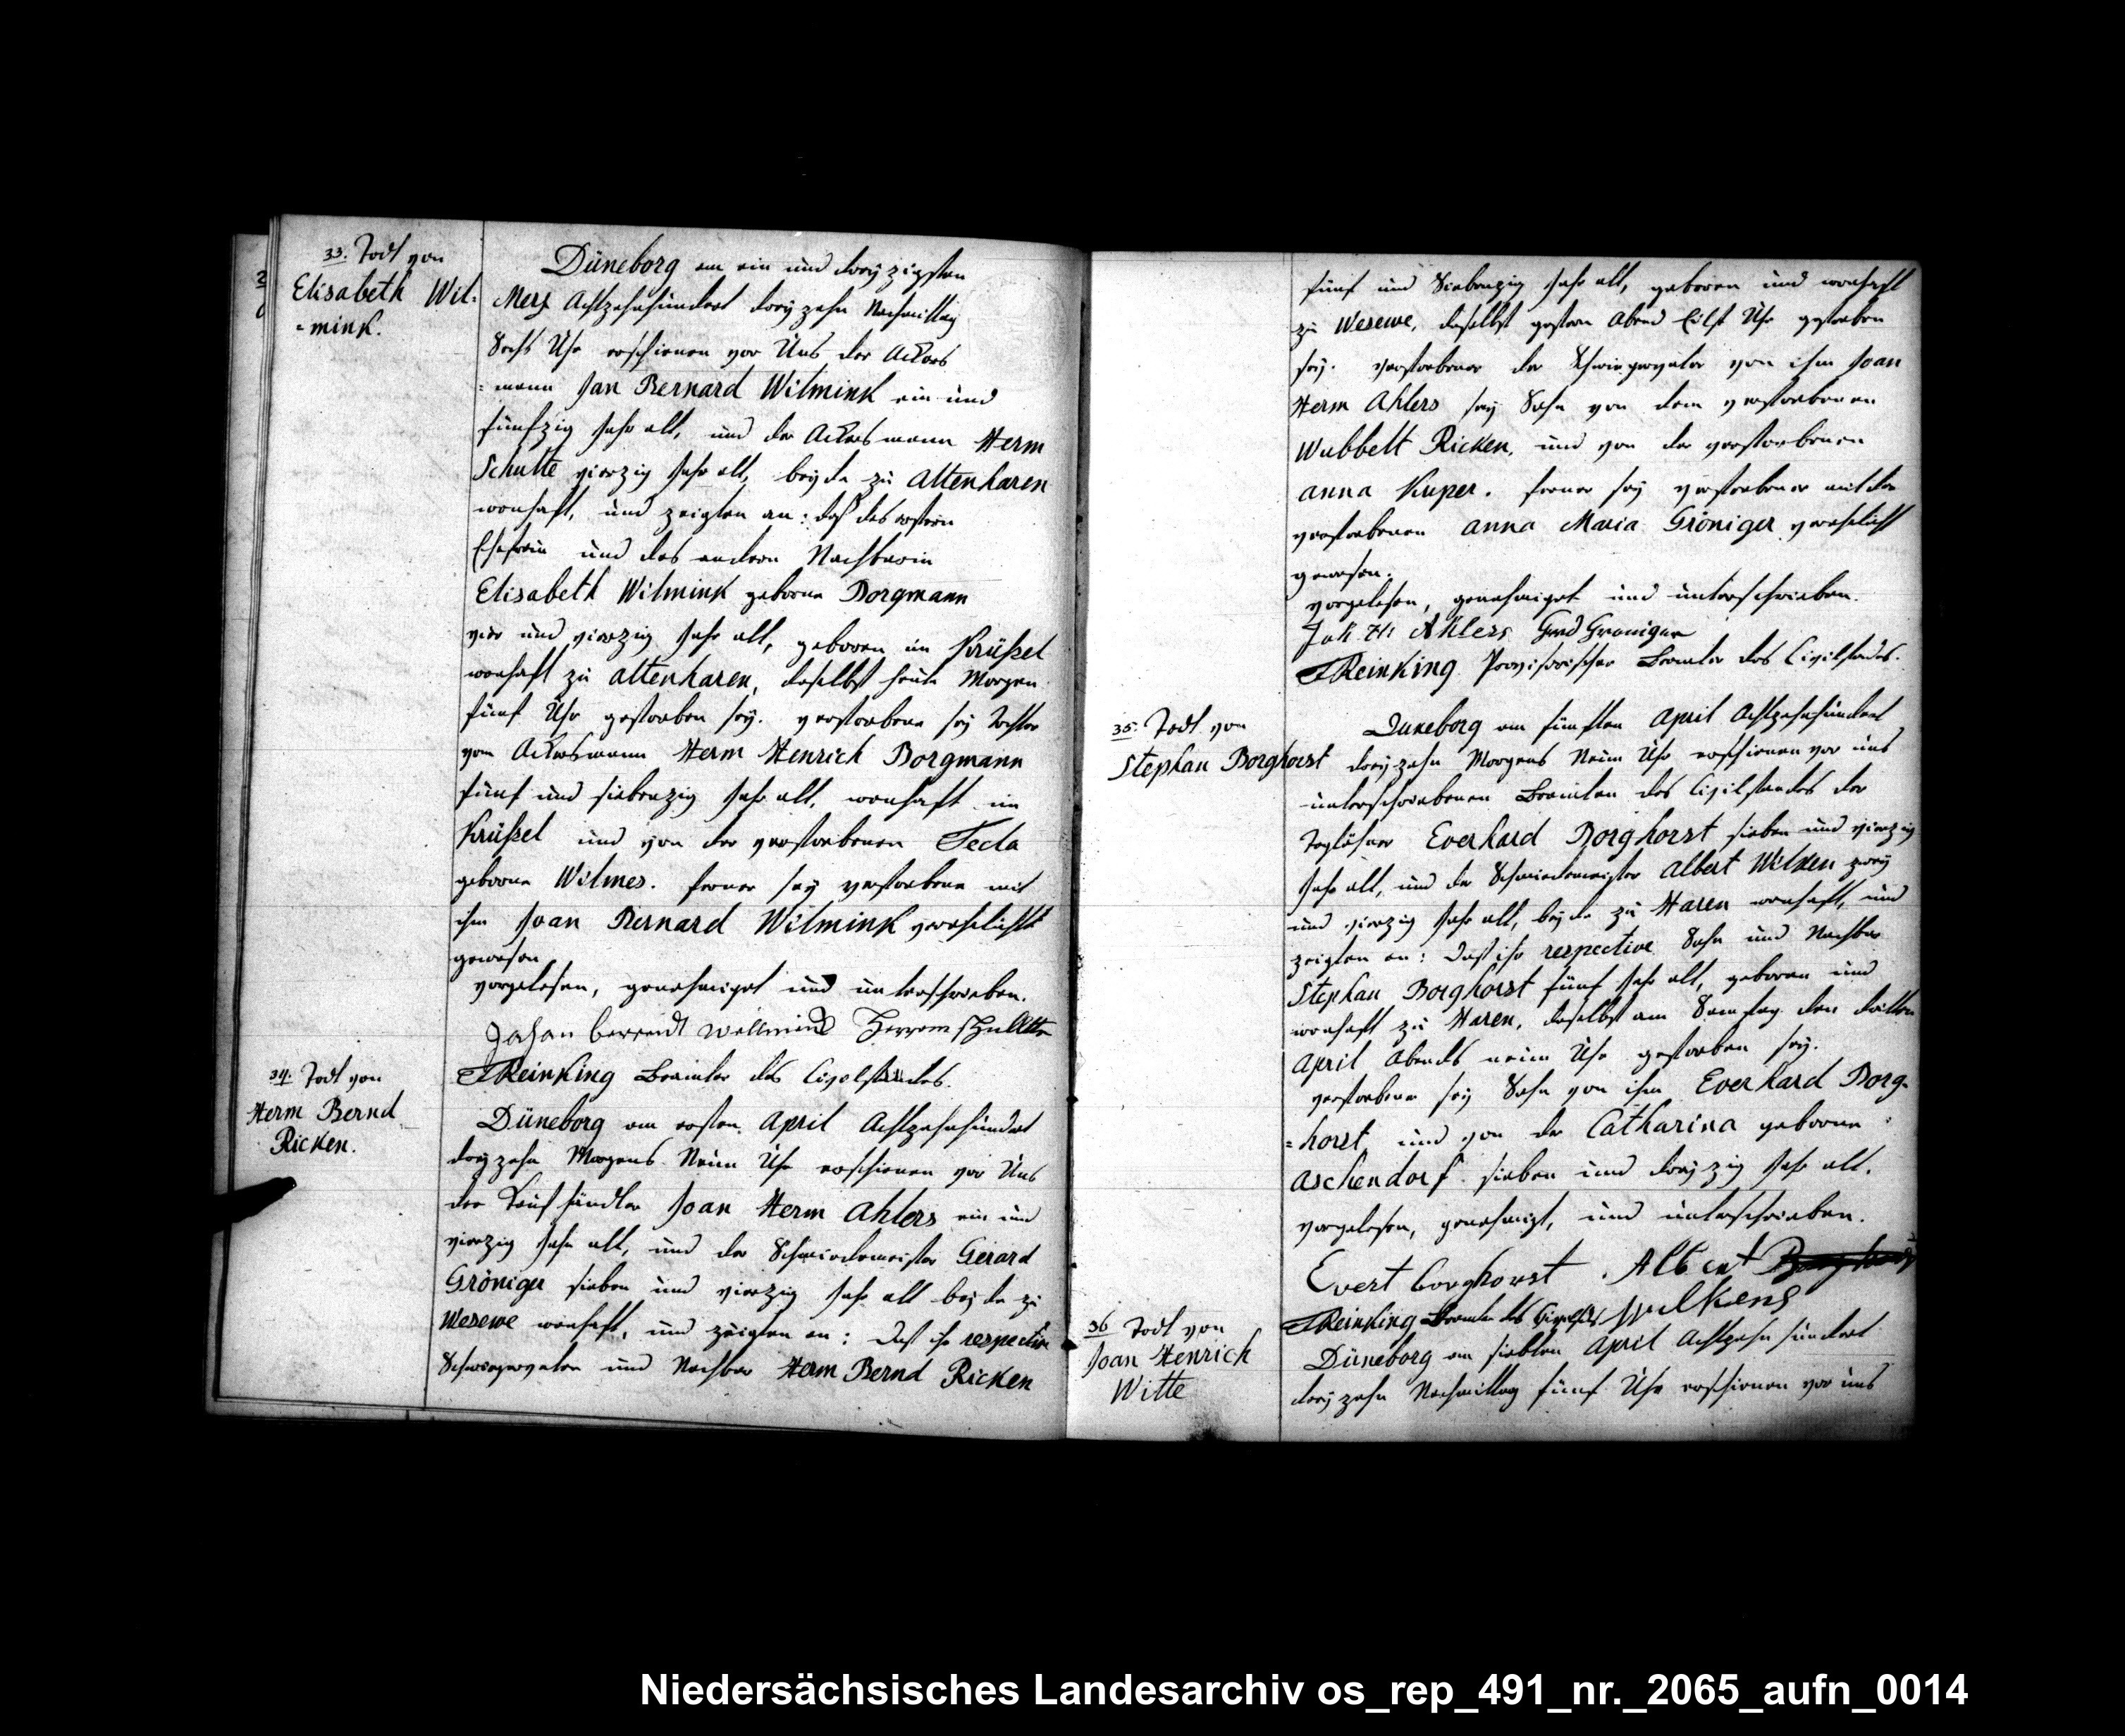 33. Todt von
Elisabeth Wil=
=mink.
Düneborg am ein und dreyzigsten
Merz Achtzehnhundert dreyzehn Nachmittag
Sechs Uhr erschienen vor Uns der Ackers
=mann Jan Bernard Wilmink ein und
fünfzig Jahr alt, und der Ackersmann Herm
Schulte vierzig Jahr alt, beyde zu Altenharen
wonhaft, und zeigten an: daß des erstern
Ehefrau und des andern Nachbarin
Elisabeth Wilmink geborne Borgmann
vier und vierzig Jahr alt, geboren im Krüßel
wonhaft zu Altenharen, daselbst heute Morgen
fünf Uhr gestorben sey. verstorbene sey Tochter
vom Ackersmann Herm Henrich Borgmann
fünf und siebenzig Jahr alt, wonhaft im
Krüßel und von der verstorbenen Tecla
geborne Wilmes. ferner sey verstorbene mit
ihm Joan Bernard Wilmink verehelicht
gewesen
vorgelesen, genehmiget und unterschrieben.
Johan berrendt wellmink Herrem schultte
Reinking Beamter des Civilstandes.
34. Todt von
Herm Bernd
Ricken.
Düneborg am ersten April Achtzehnhundert
dreyzehn Morgens Neun Uhr erschienen vor Uns
der Kaufhändler Joan Herm Ahlers ein und
vierzig Jahr alt, und der Schmiedemeister Gerard
Gröniger sieben und vierzig Jahr alt beyde zu
Wesewe wonhaft, und zeigten an: Daß ihr respective
Schwiegervater und Nachbar Herm Bernd Ricken
fünf und Siebenzig Jahr alt, geboren und wonhaft
zu Wesewe, daselbst gestern Abend Eilf Uhr gestorben
sey. verstorbener der Schwiegervater von ihm Joan
Herm Ahlers sey Sohn von dem verstorbenen
Wubbelt Ricken, und von der verstorbenen
Anna Kuper. ferner sey verstorbener mit der
verstorbenen Anna Maria Gröniger verehelicht
gewesen.
vorgelesen, genehmiget und unterschrieben.
Joh H: Ahlers Gerd Groniger
Reinking Provisorischer Beamter des Civilstandes.
35. Todt von
Stephan Borghorst
Duneborg am fünften April Achtzehnhundert
dreyzehn Morgens Neun Uhr erschienen vor uns
unterschriebenen Beamten des Civilstandes der
Taglöhner Everhard Borghorst sieben und vierzig
Jahr alt, und der Schmiedemeister Albert Wilken zwey
und vierzig Jahr alt, beyde zu Haren wonhaft, und
zeigten an: Daß ihr respective Sohn und Nachbar
Stephan Borghorst fünf Jahr alt, geboren und
wonhaft zu Haren, daselbst am Samstag den dritten
April Abends neun Uhr gestorben sey.
verstorbener sey Sohn von ihm Everhard Borg=
=horst und von der Catharina geborne
Aschendorf sieben und dreyzig Jahr alt.
vorgelesen, genehmigt, und unterschrieben.
Evert Borghorst . Albert
Reinking Beamter des Civilstds Wilkens
36 Todt von
Joan Henrich
Witte
Düneborg am siebten April Achtzehn hundert
dreyzehn Nachmittag fünf Uhr erschienen vor uns
Niedersächsisches Landesarchiv os_rep_491_nr._2065_aufn_0014